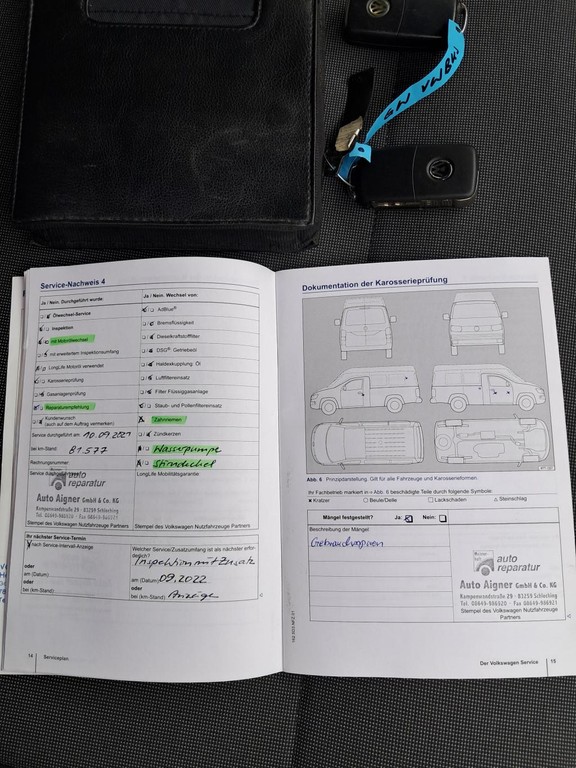 GW VWBUS
Service-Nachweis 4
Ja / Nein. Durchgeführt wurde:
Ölwechsel-Service
Inspektion
mit Motorölwechsel
mit erweitertem Inspektionsumfang
LongLife Motoröl verwendet
Karosserieprüfung
Gasanlagenprüfung
Reparaturempfehlung
Kundenwunsch
(auch auf dem Auftrag vermerken)
Service durchgeführt am: 10.09.2021
bei km-Stand: 81.577
Rechnungsnummer:
Service durchgeführt
auto
reparatur
Auto Aigner GmbH & Co. KG
Stempel des Volkswagen Nutzfahrzeuge Partners
Ja / Nein. Wechsel von:
AdBlue®
Bremsflüssigkeit
Dieselkraftstofffilter
DSG® Getriebeöl
Haldexkupplung: Öl
Luftfiltereinsatz
Filter Flüssiggasanlage
Staub- und Pollenfiltereinsatz
Zahnriemen
Zündkerzen
Wasserpumpe
LongLife Mobilitätsgarantie:
Ihr nächster Service-Termin
nach Service-Intervall-Anzeige
oder
am (Datum):
oder
bei (km-Stand):
Welcher Service/Zusatzumfang ist als nächster erfor-
derlich?
Inspektion mit Zusatz
am (Datum) 09.2022
oder
bei (km-Stand): Anzeige
14 Serviceplan
Dokumentation der Karosserieprüfung
Abb. 6 Prinzipdarstellung. Gilt für alle Fahrzeuge und Karosserieformen.
Ihr Fachbetrieb markiert in Abb. 6 beschädigte Teile durch folgende Symbole:
Kratzer Beule/Delle Lackschaden Steinschlag
Mängel festgestellt? Ja: Nein:
Beschreibung der Mängel
Gebrauchsspuren
auto
reparatur
Auto Aigner GmbH & Co. KG
Kampenwandstraße 29 - 83259 Schleching
Stempel des Volkswagen Nutzfahrzeuge
Partners
Der Volkswagen Service 15